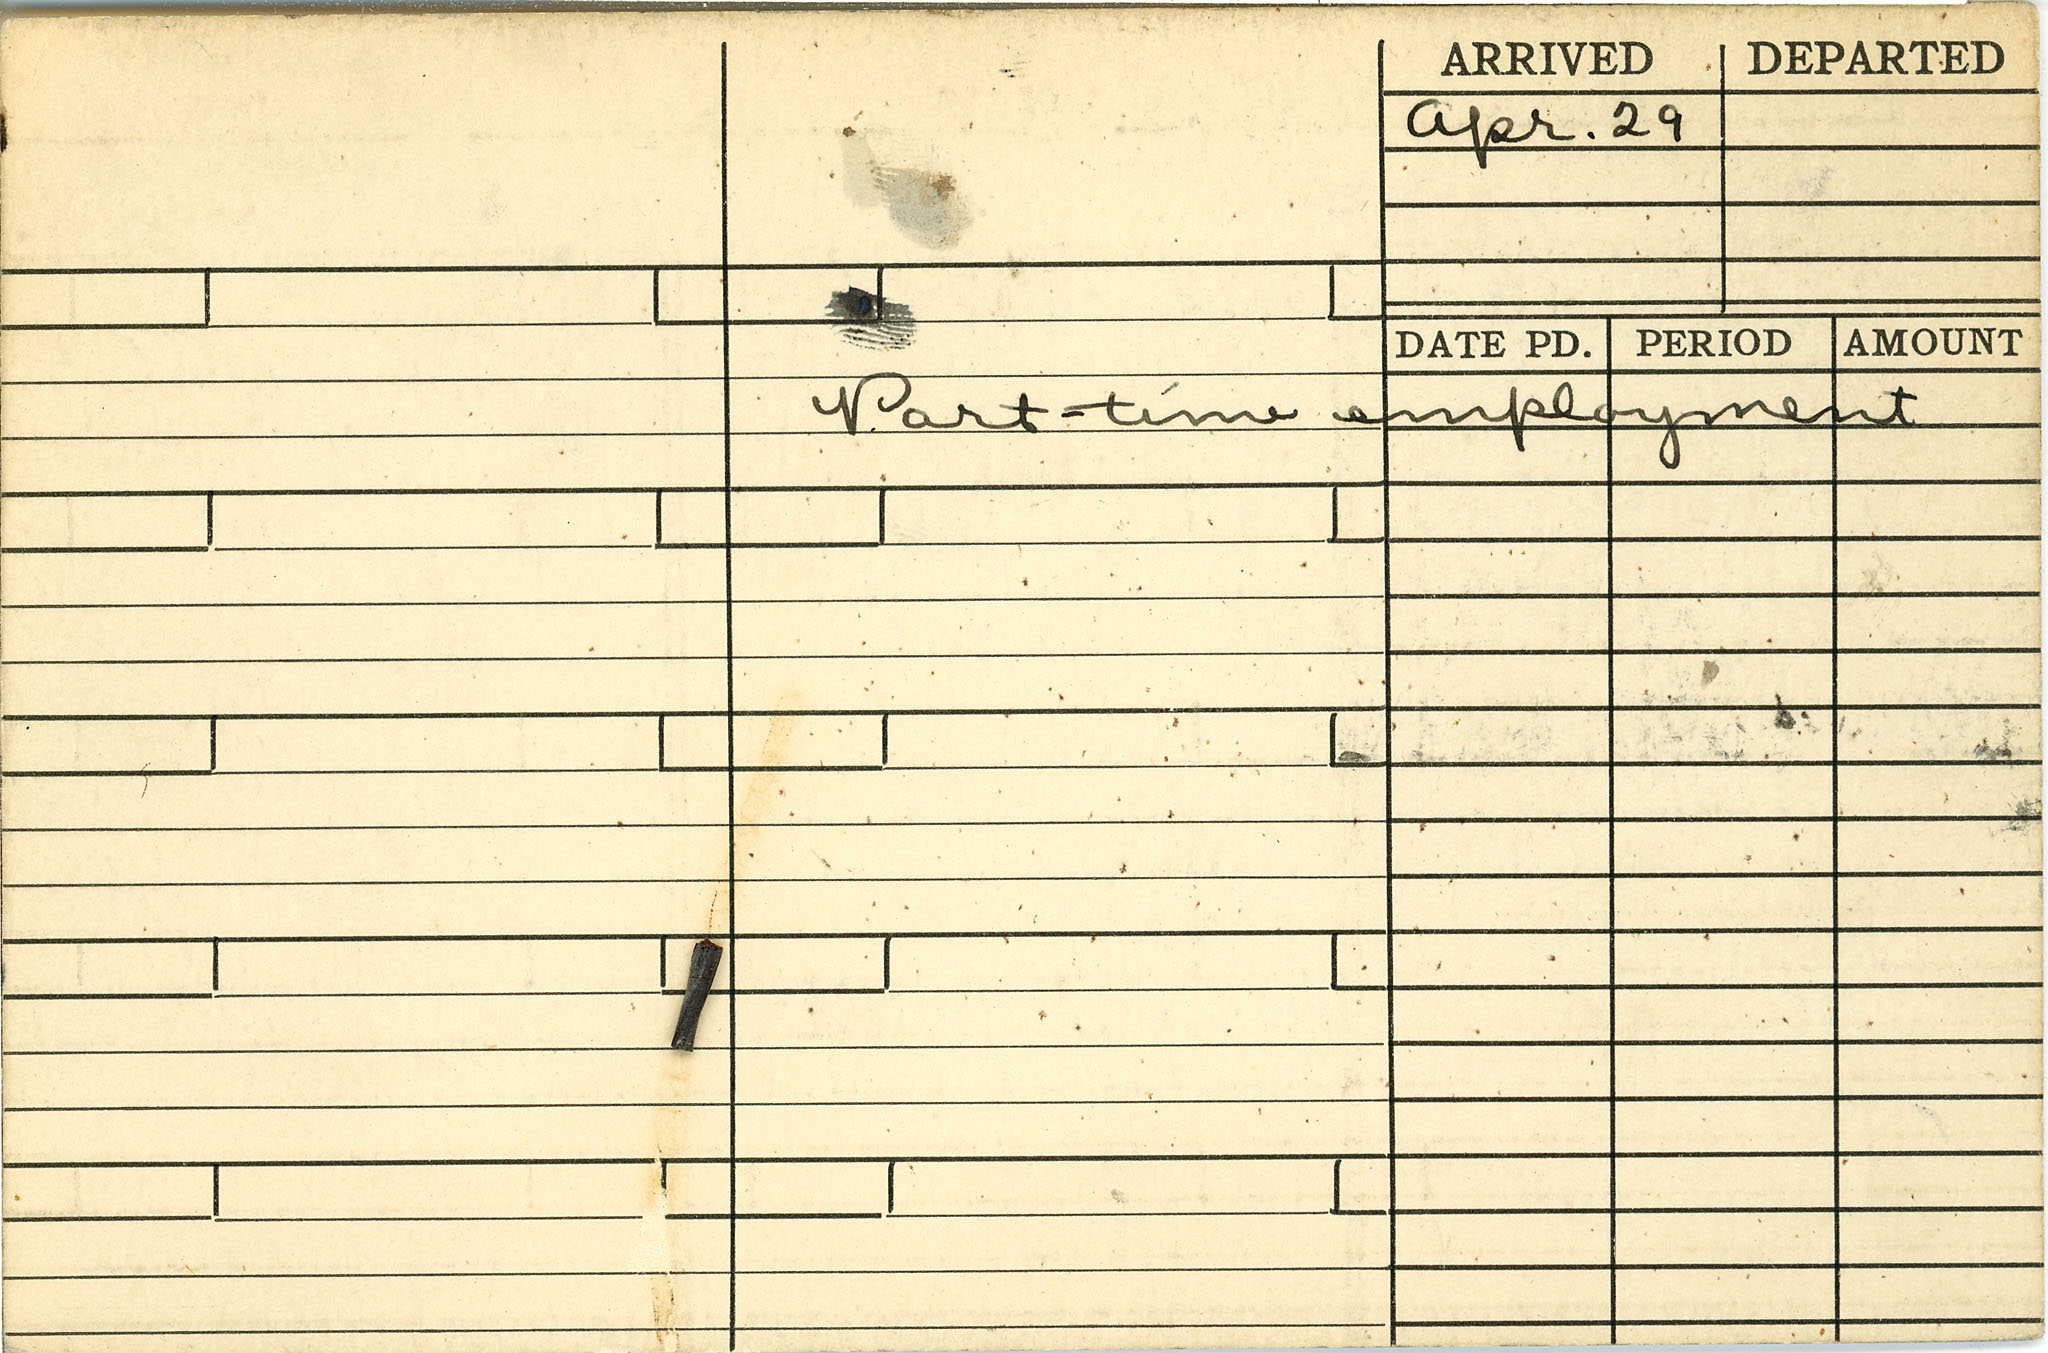 ARRIVED DEPARTED
Apr. 29
DATE PD. PERIOD AMOUNT
Part-time employment